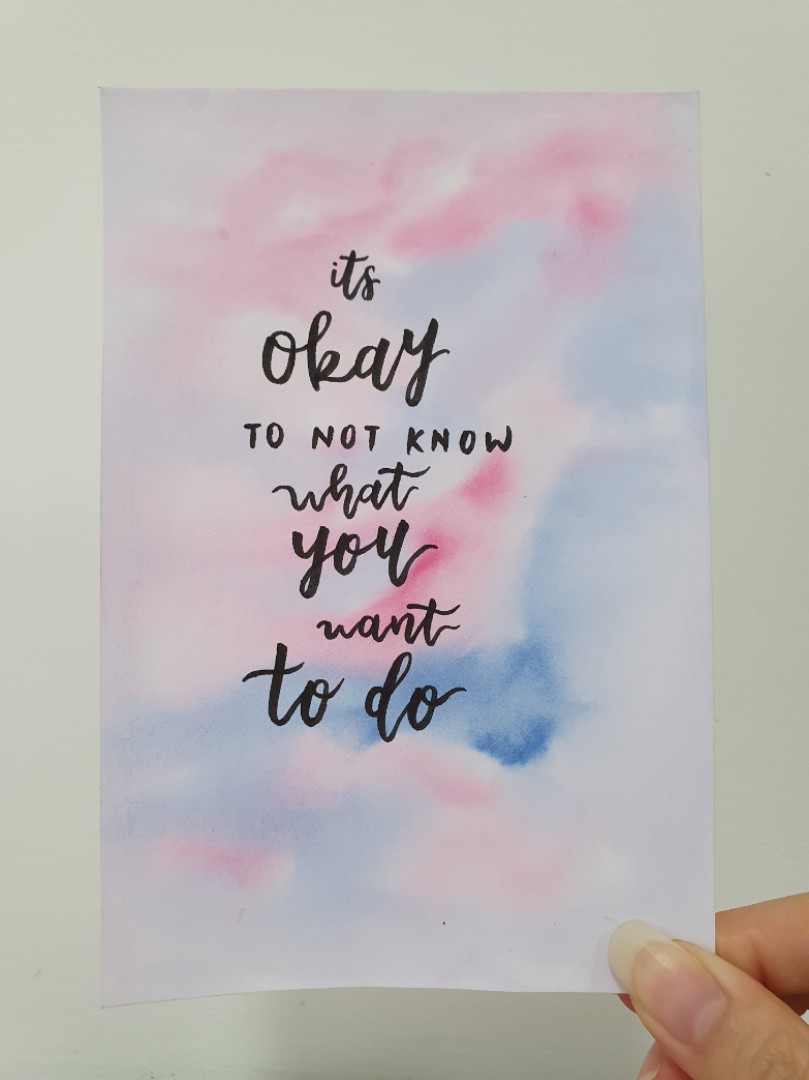 its
okay
TO NOT KNOW
what
you
want
to do